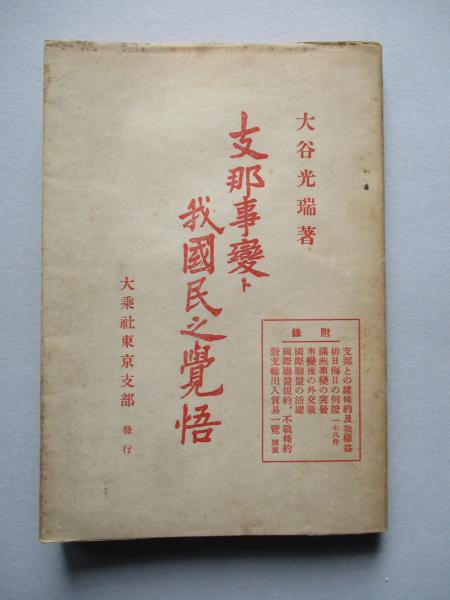 大谷光瑞著
支那事變ト
我國民之覺悟
附錄
支那との諸條約及我權益
排日侮日の例證一七八件
滿洲事變の突發
事變後の外交戰
國際聯盟の活躍
國際聯盟規約，不戰條約
對支輸出入貿易一覽 別表
大乘社東京支部 發行